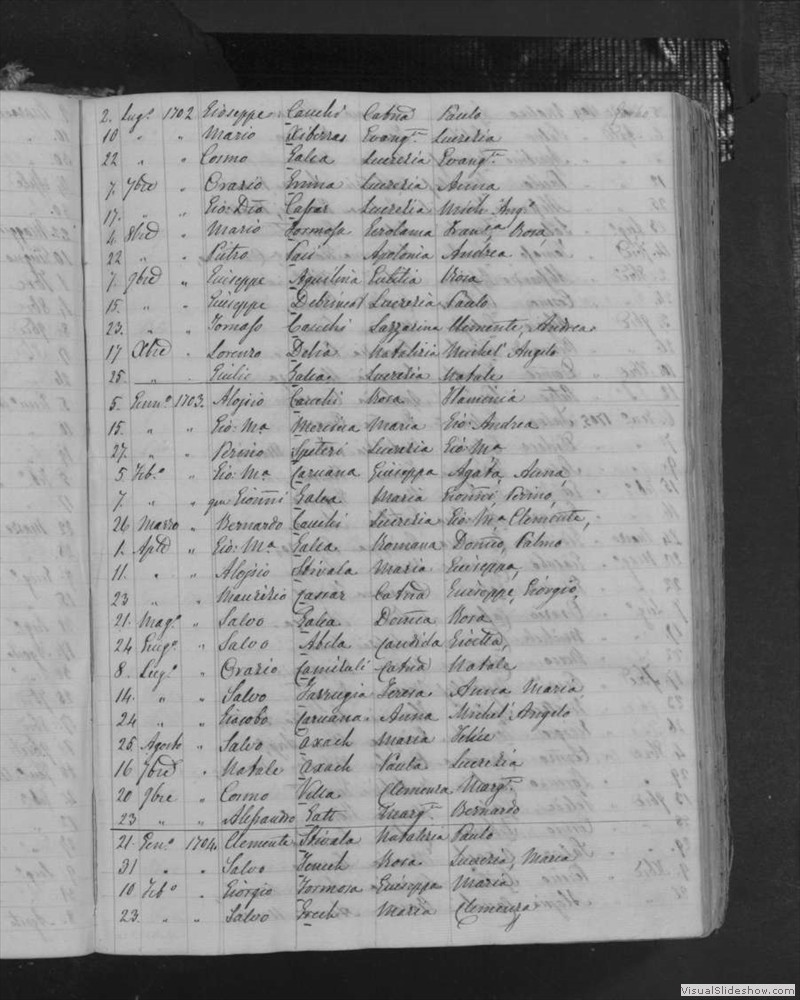 2. Lug.º 1702 Gioseppe Cauchi Catnã Paulo
10 " " Mario Xiberras Evang.ta Lucrezia
22 " " Cosmo Galea Lucrezia Evang.ta
7. 7bre " Orazio Enina Lucrezia Anna
17. " " Gio: Dio Caspar Lucrezia Mich: Ang.º
4. 8bre " Mario Formosa Girolama Fran.ca Rosa
22 " " Pietro Paci Apolonia Andrea
7. 9bre " Giuseppe Aquilina Eutilia Rosa
15. " " Giuseppe Debrincat Lucrezia Paulo
23. " " Tomaso Cauchi Lazzarina Clemente, Andrea
17 Xbre " Lorenzo Delia Natalizia Michel' Angelo
25. " " Giulio Galea Lucrezia Natale
5. Genn.º 1703. Alojsio Cauchi Rosa Flaminia
15. " " Gio: M.a Mercieca Maria Gio: Andrea
27. " " Perino Spiteri Lucrezia Gio: M.a
5 Feb.º " Gio: M.a Caruana Giuseppa Agata, Anna,
7. " " qm Gionni Galea Maria Gionni, Perino,
26 Marzo " Bernardo Cauchi Lucrezia Gio: M.a Clemente,
1. Aple " Gio: M.a Galea Romana Domco, Palmo
11. " " Alojsio Stivala Maria Giuseppa,
23 " " Maurizio Caspar Catnã Giuseppe, Giorgio,
21. Mag.º " Salvo Galea Domca Rosa
24 Giug.º " Salvo Abela Candida
8. Lug.º " Orazio Camilali Catnã Natale
14. " " Salvo Farrugia Teresa Anna Maria
24 " " Giacobo Caruana Anna Michel' Angelo
25. Agosto " Salvo Axach Maria Felice
16 7bre " Natale Axach Paula Lucrezia
20 9bre " Cosmo Vella Clemenza Marg.ta
23 " " Alessandro Gatt Marg.ta Bernardo
21. Gen.º 1704. Clemente Stivala Natalizia Paulo
31 " " Salvo Rosa Lucrezia, Maria
10. Feb.º " Giorgio Formosa Giuseppa Maria
23. " " Salvo Grech Maria Clemenza
VisualSlideshow.com